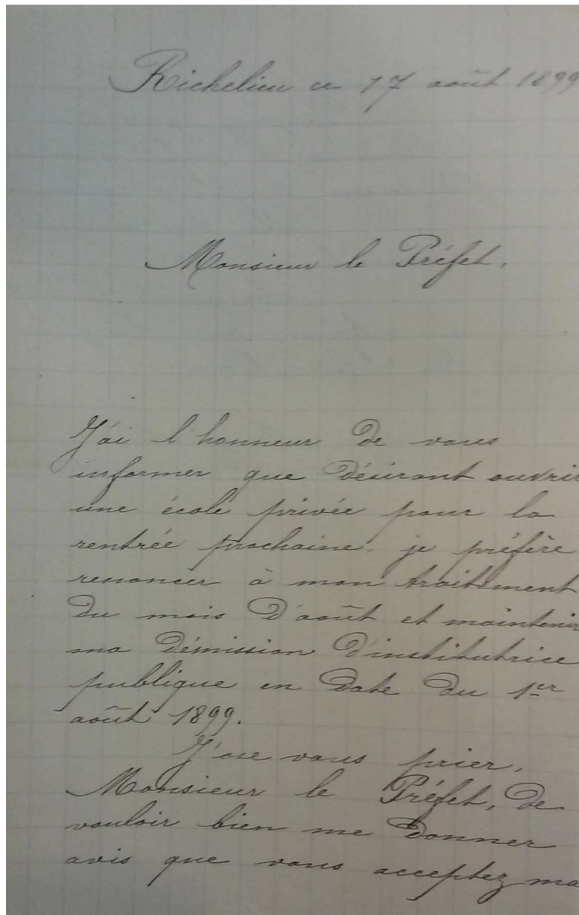 Richelieu ce 17 août 1899
Monsieur le Préfet.
J'ai l'honneur de vous
informer que désirant ouvrir
une école privée pour la
rentrée prochaine, je préfère
renoncer à mon traitement
du mois d'août et maintenir
ma démission d'institutrice
publique en date du 1er
août 1899.
J'ose vous prier,
Monsieur le Préfet, de
vouloir bien me donner
avis que vous acceptez ma